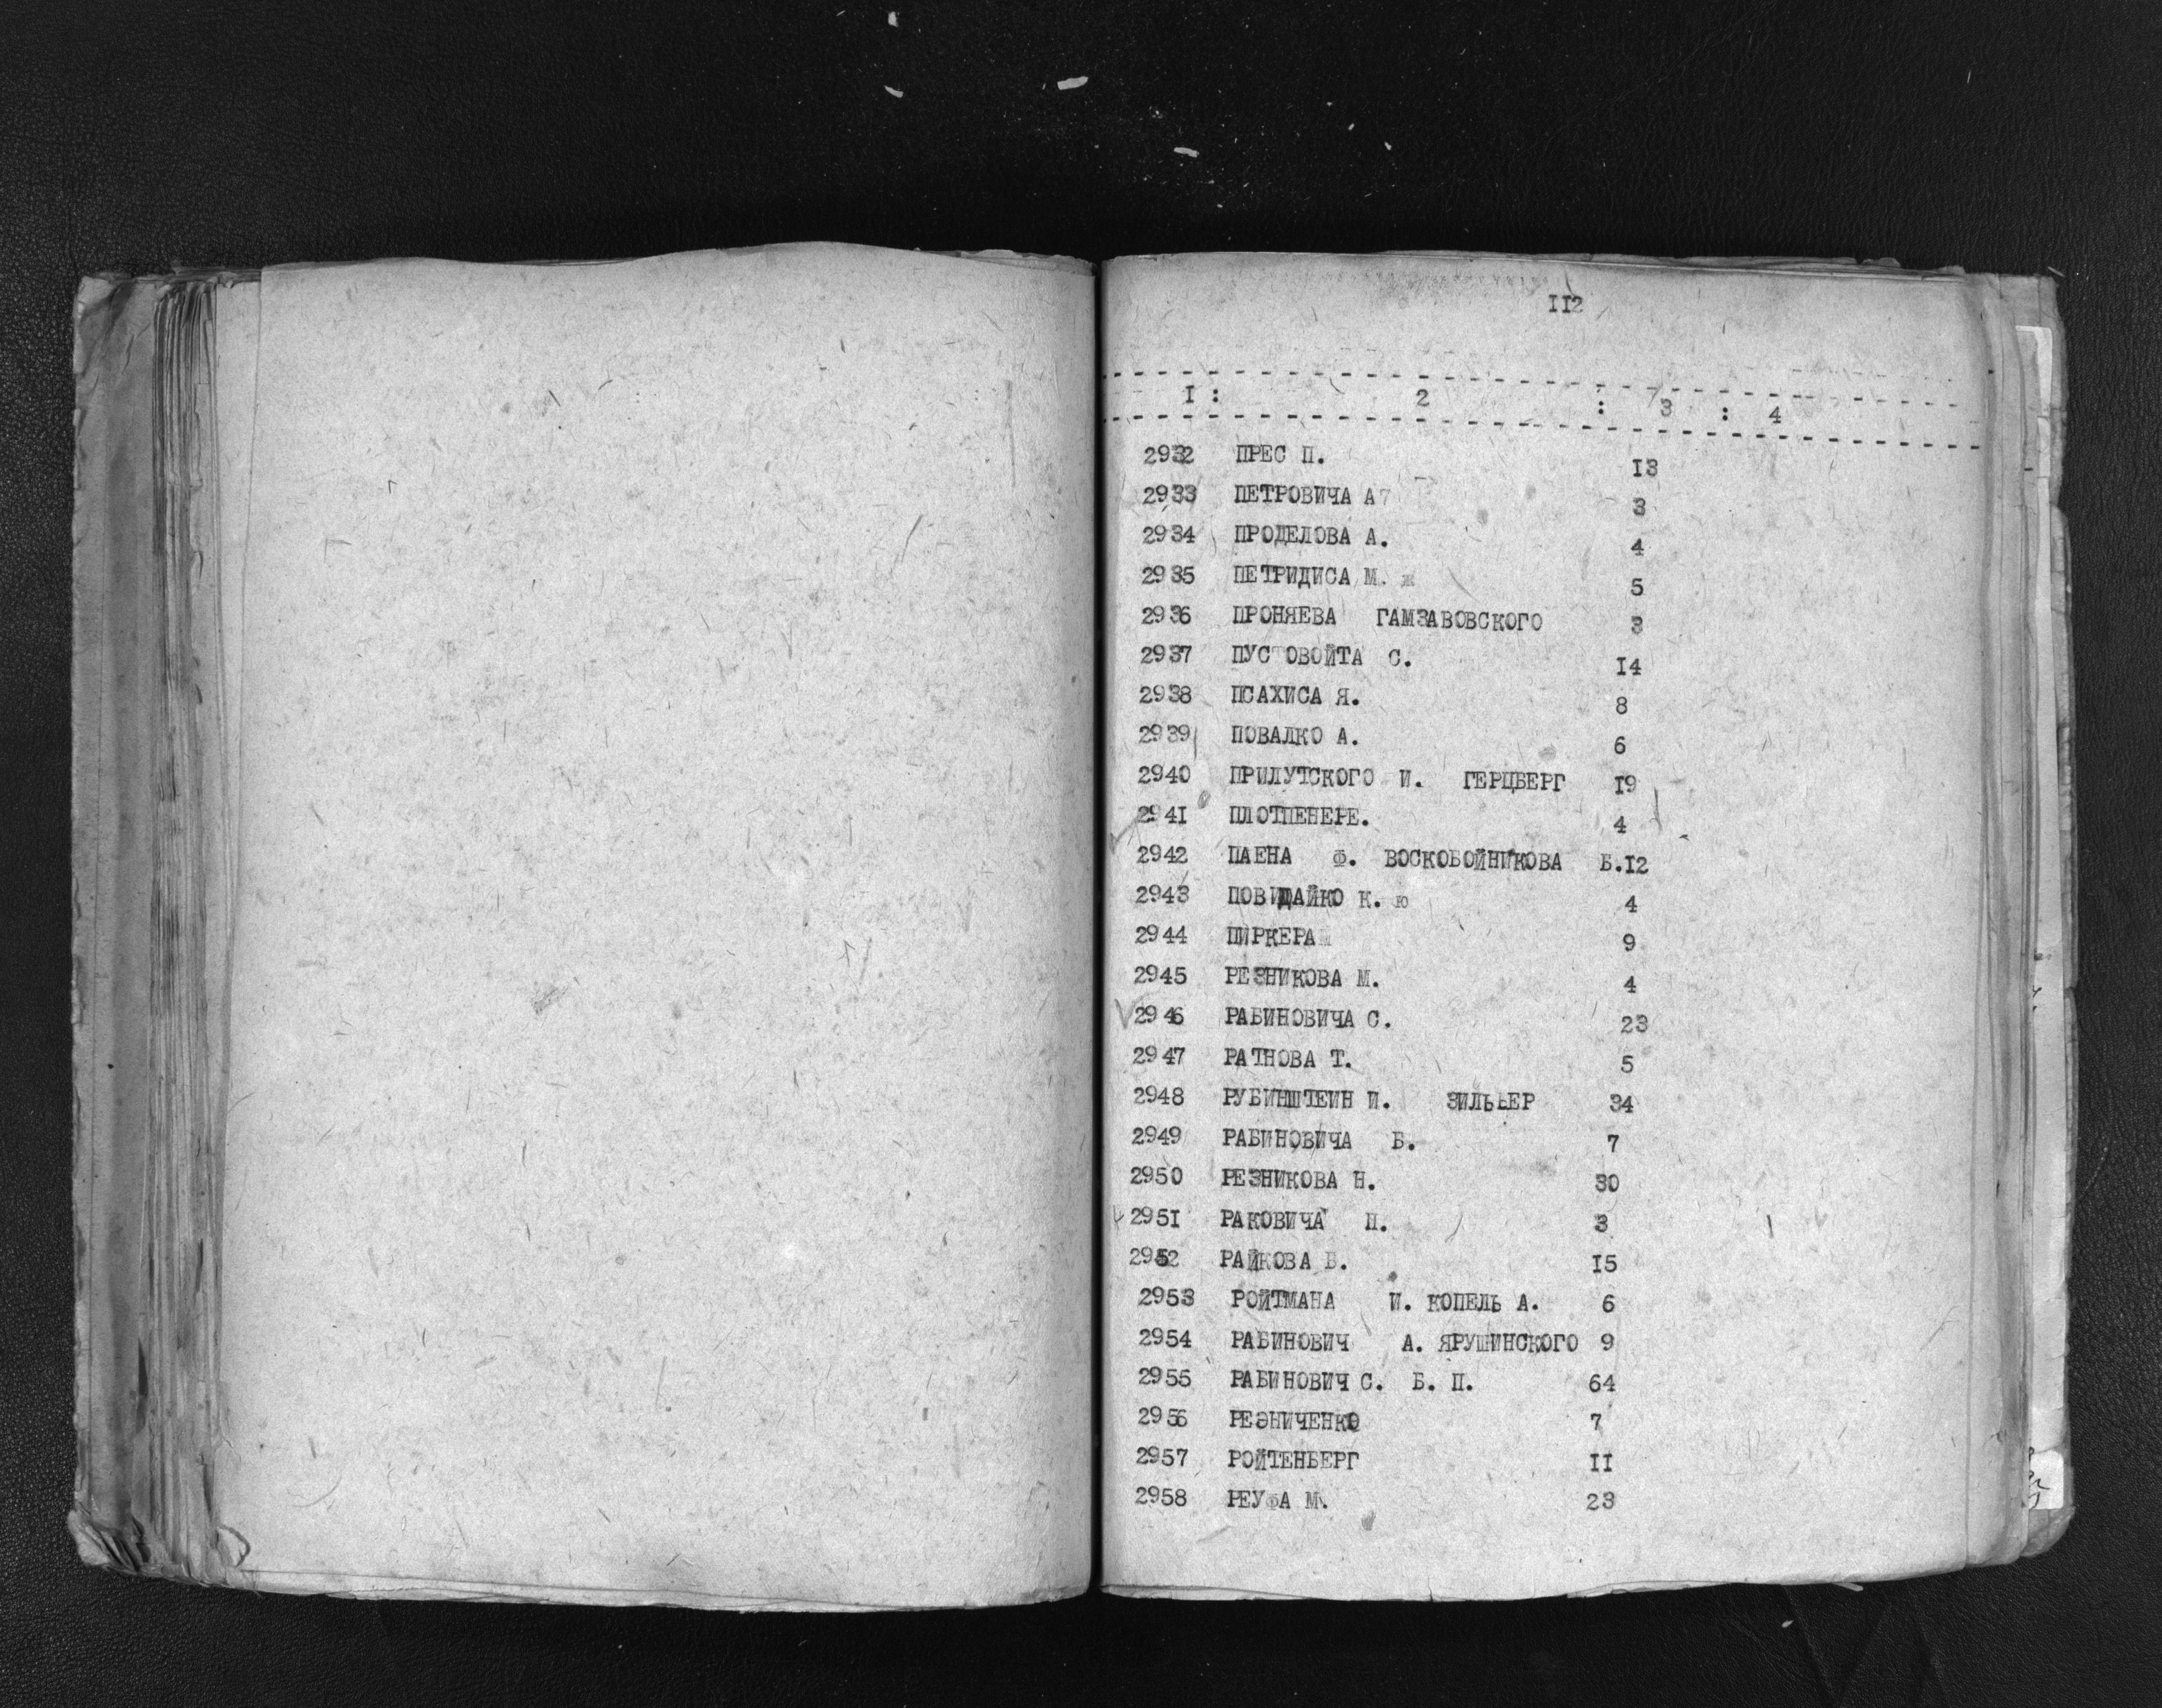 112
1 : 2 : 3 : 4
2932 ПРЕС П. 13
2933 ПЕТРОВИЧА А 3
2934 ПРОДЕЛОВА А. 4
2935 ПЕТРИДИСА М. ж 5
2936 ПРОНЯЕВА ГАМЗАВОВСКОГО 3
2937 ПУСТОВОЙТА С. 14
2938 ПСАХИСА Я. 8
2939 ПОВАЛКО А. 6
2940 ПРИЛУТСКОГО И. ГЕРЦБЕРГ 19
2941 ПЛОТПЕНЕРЕ. 4
2942 ПАЕНА Ф. ВОСКОБОЙНИКОВА Б.12
2943 ПОВИДАЙКО К. ю 4
2944 ПИРКЕРА 9
2945 РЕЗНИКОВА М. 4
2946 РАБИНОВИЧА С. 23
2947 РАТНОВА Т. 5
2948 РУБИНШТЕИН И. ЗИЛЬБЕР 34
2949 РАБИНОВИЧА Б. 7
2950 РЕЗНИКОВА Н. 30
2951 РАКОВИЧА П. 3
2952 РАЙКОВА В. 15
2953 РОЙТМАНА И. КОПЕЛЬ А. 6
2954 РАБИНОВИЧ А. ЯРУШИНСКОГО 9
2955 РАБИНОВИЧ С. Б. П. 64
2956 РЕЗНИЧЕНКО 7
2957 РОЙТЕНБЕРГ 11
2958 РЕУФА М. 23